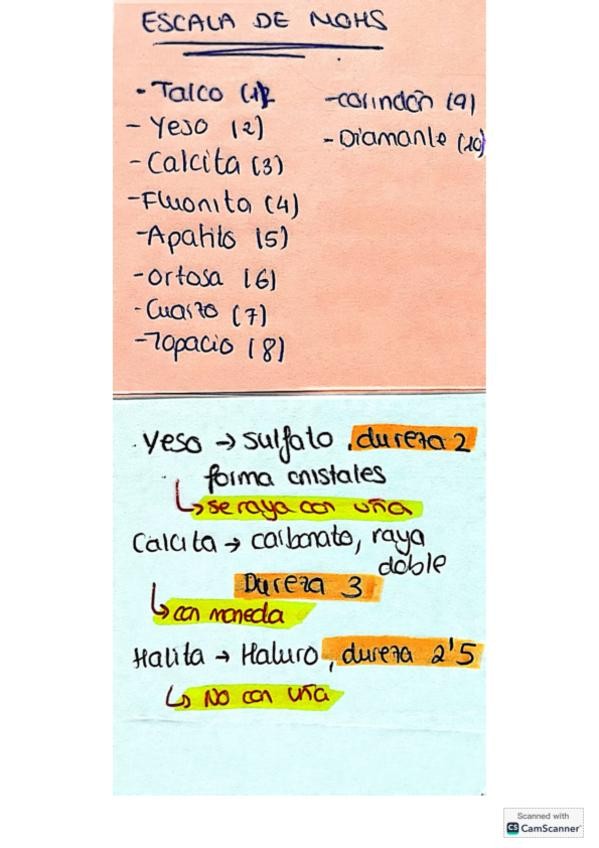 ESCALA DE MOHS
- Talco (1)
- Yeso (2)
- Calcita (3)
- Fluorita (4)
- Apatito (5)
- Ortosa (6)
- Cuarzo (7)
- Topacio (8)
- Corindón (9)
- Diamante (10)
. Yeso → sulfato, dureza 2
forma cristales
↳ se raya con uña
Calcita → carbonato, raya
doble
Dureza 3
↳ con moneda
Halita → Haluro, dureza 2'5
↳ No con uña
Scanned with
CS CamScanner